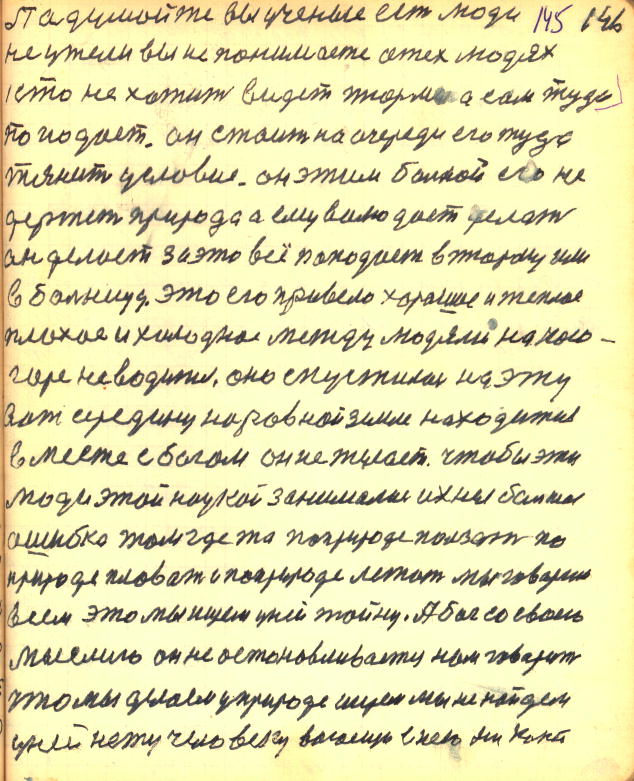 Падумойте вы ученые ест люди 145 146
неужели вы не понимаете отех людях
кто не хотит видет тюрма а сам туда
погодает. он стоит на очереди его туда
тянит условие. он этим болной его не
держет природа а ему волю дает делат
он делает за это всё поподает втюрму или
в болницу. Это его привело хорошие и теплое
плохое и холодное между людями на
горе не водитс, оно спустилас на эту
вот середину на ровной земле находитса
вместе с богом он не желает. чтобы эти
люди этой наукой занималис их ны болшая
ошибка там где та по природе ползат по
природе плават и по природе летат мы говорим
всем это мы ищем уней тойну. А бог со своею
мыслию он не остановливаетса нам говорит
что мы делаем у природе ищем мы не найдем
уней нету человеку в него